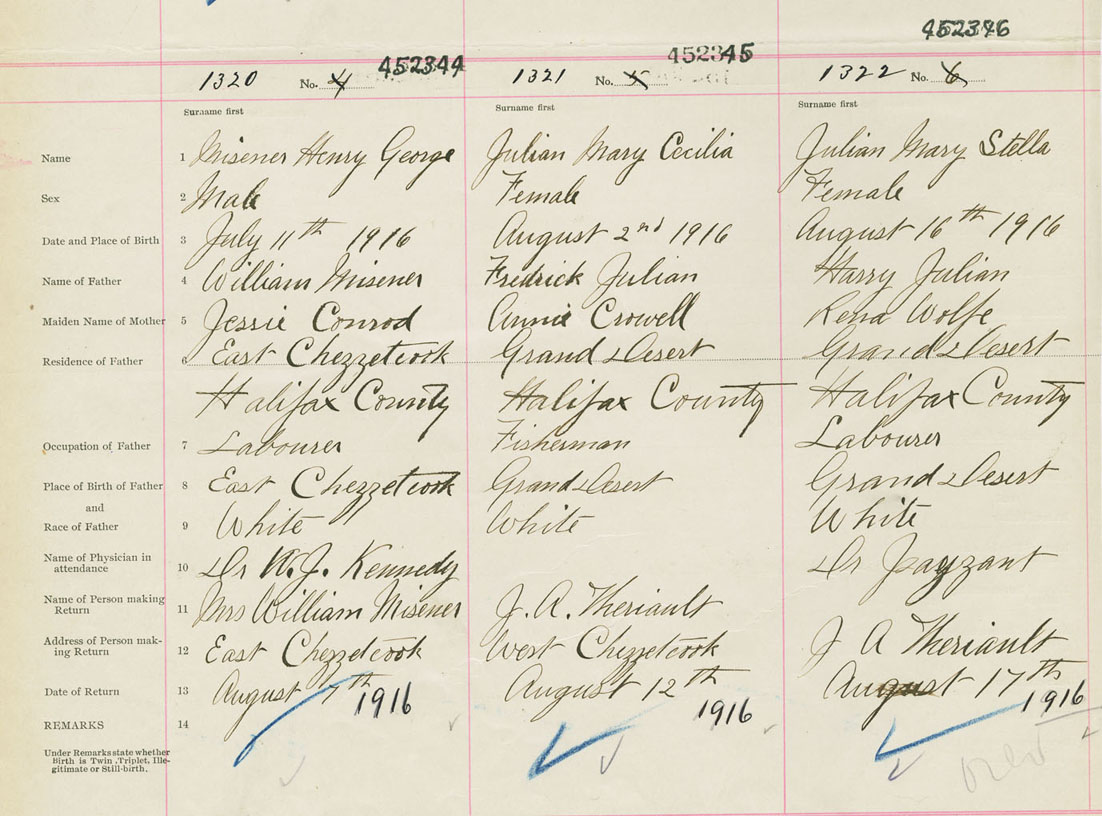 452344 452345 452346
1320 No. 4 1321 No. 5 1322 No. 6
Surname first Surname first Surname first
Name 1 Misener Henry George Julian Mary Cecilia Julian Mary Stella
Sex 2 Male Female Female
Date and Place of Birth 3 July 11th 1916 August 2nd 1916 August 16th 1916
Name of Father 4 William Misener Fredrick Julian Harry Julian
Maiden Name of Mother 5 Jessie Conrod Annie Crowell Rena Wolfe
Residence of Father 6 East Chezzetcook Grand Desert Grand Desert
Halifax County Halifax County Halifax County
Occupation of Father 7 Labourer Fisherman Labourer
Place of Birth of Father 8 East Chezzetcook Grand Desert Grand Desert
and
Race of Father 9 White White White
Name of Physician in
attendance 10 Dr W. J. Kennedy Dr Payzant
Name of Person making
Return 11 Mrs William Misener J. A. Theriault J A Theriault
Address of Person mak-
ing Return 12 East Chezzetcook West Chezzetcook
Date of Return 13 August 7th 1916 August 12th 1916 August 17th 1916
REMARKS 14
Under Remarks state whether
Birth is Twin, Triplet, Ille-
gitimate or Still-birth.